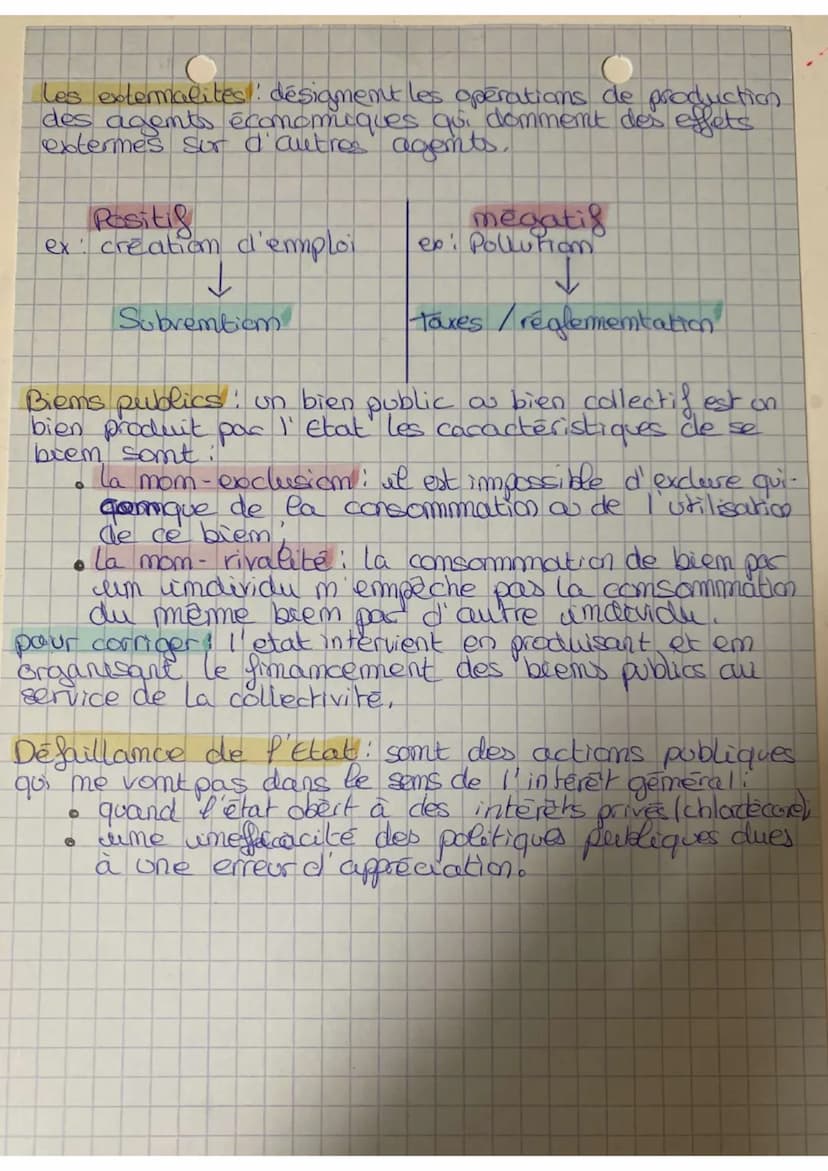 Les externalités : désignent les opérations de production
des agents économiques qui donnent des effets
externes sur d'autres agents.
Positif
ex : création d'emploi
Subvention
négatif
ex : Pollution
taxes / réglementation
Biens publics : un bien public ou bien collectif est un
bien produit par l'Etat les caractéristiques de se
bien sont :
• la non-exclusion : il est impossible d'exclure qui-
conque de la consommation ou de l'utilisation
de ce bien ;
• la non-rivalité : la consommation de bien par
un individu n'empêche pas la consommation
du même bien par d'autre individu.
pour corriger : l'etat intervient en produisant et en
organisant le financement des biens publics au
service de la collectivité.
Défaillance de l'Etat : sont des actions publiques
qui ne vont pas dans le sens de l'intérêt général :
• quand l'état obéit à des intérêts privés (chlordécone)
• une inefficacité des politiques publiques dues
à une erreur d'appréciation.